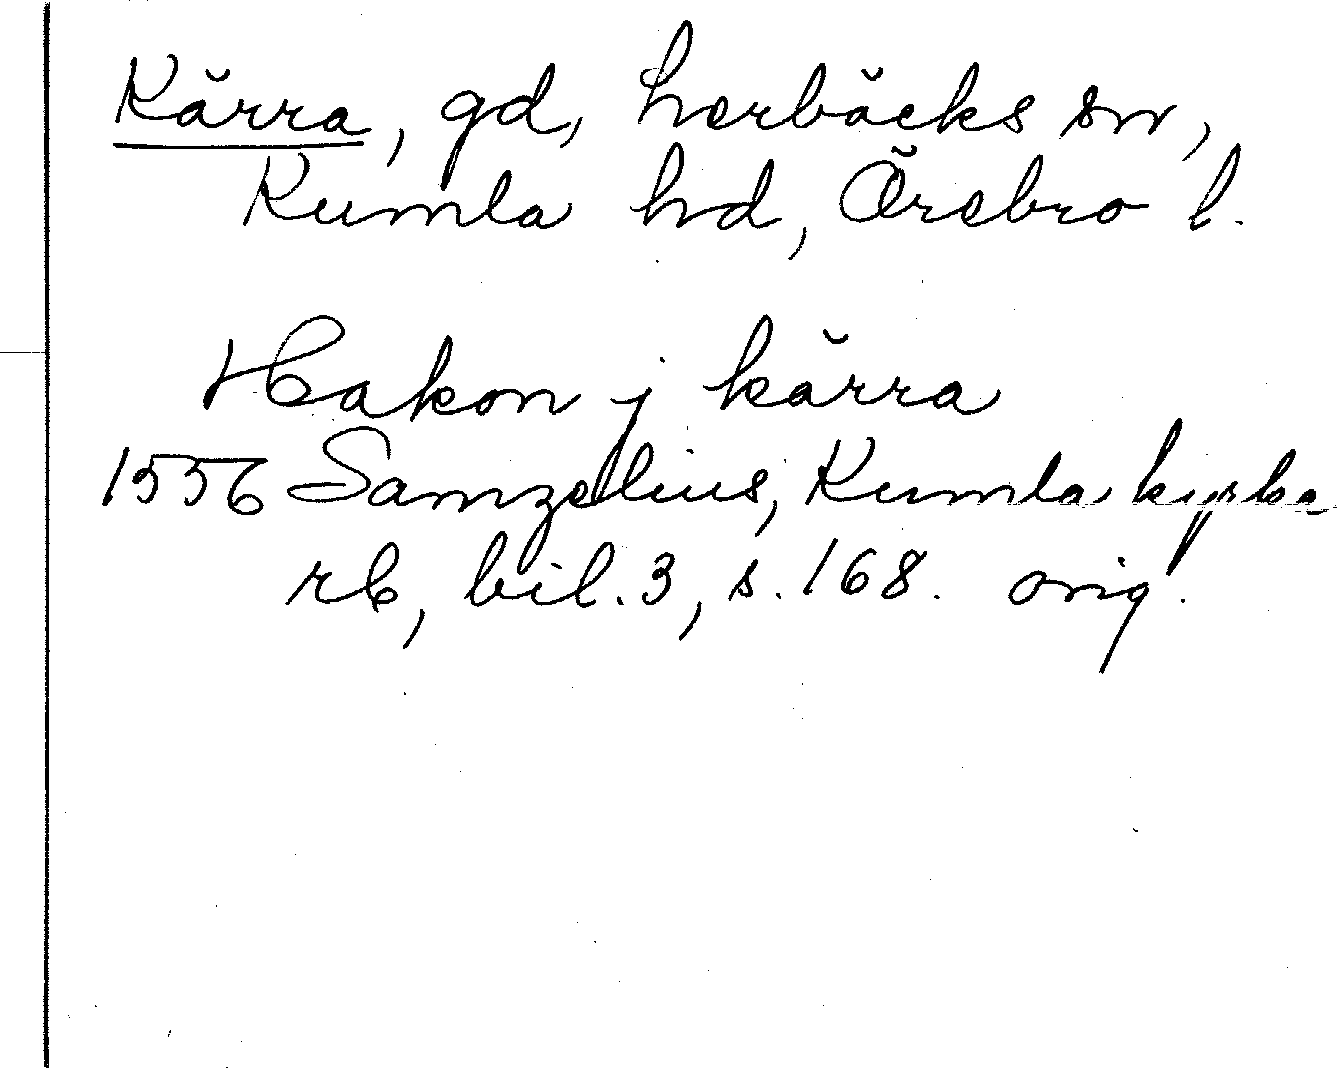 Kärra, gd, Lerbäcks sn,
Kumla hd, Örebro l.
Hakon j kärra
1556 Samzelius, Kumla kyrka
rb, bil. 3, s. 168. orig.